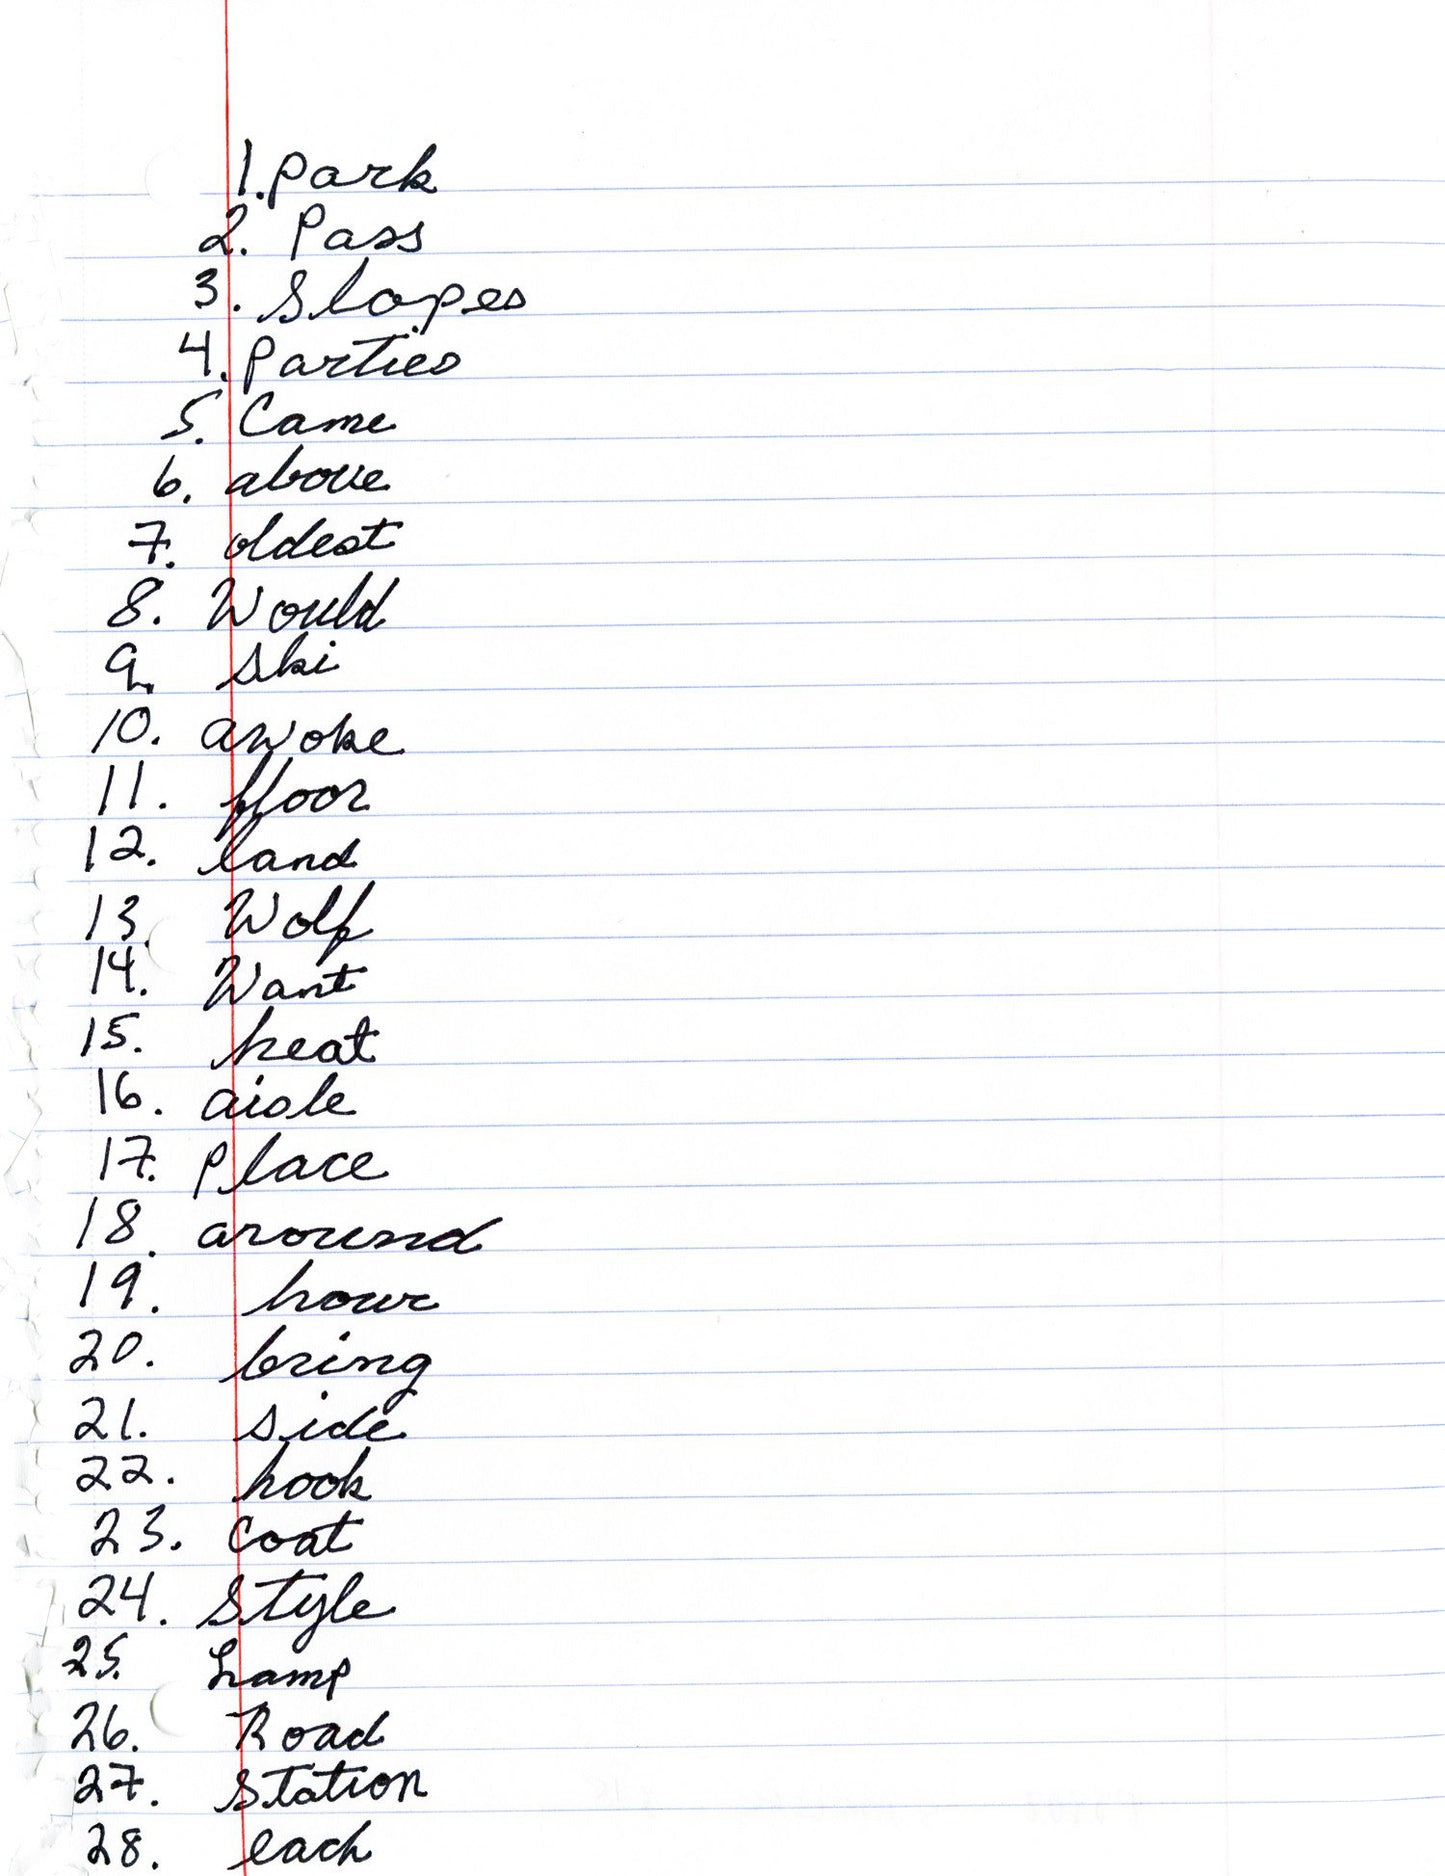 1. Park
2. Pass
3. Slopes
4. Parties
5. Came
6. above
7. oldest
8. Would
9. Ski
10. awoke
11. floor
12. land
13. Wolf
14. Want
15. heat
16. aisle
17. place
18. around
19. hour
20. bring
21. side
22. hook
23. coat
24. Style
25. Lamp
26. Road
27. Station
28. each